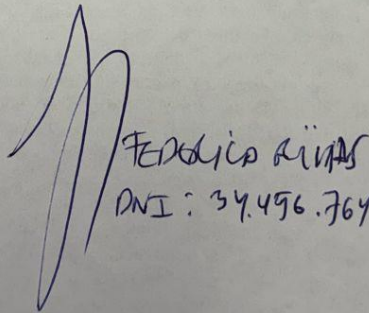 FEDERICO RIVAS
DNI: 34.496.764